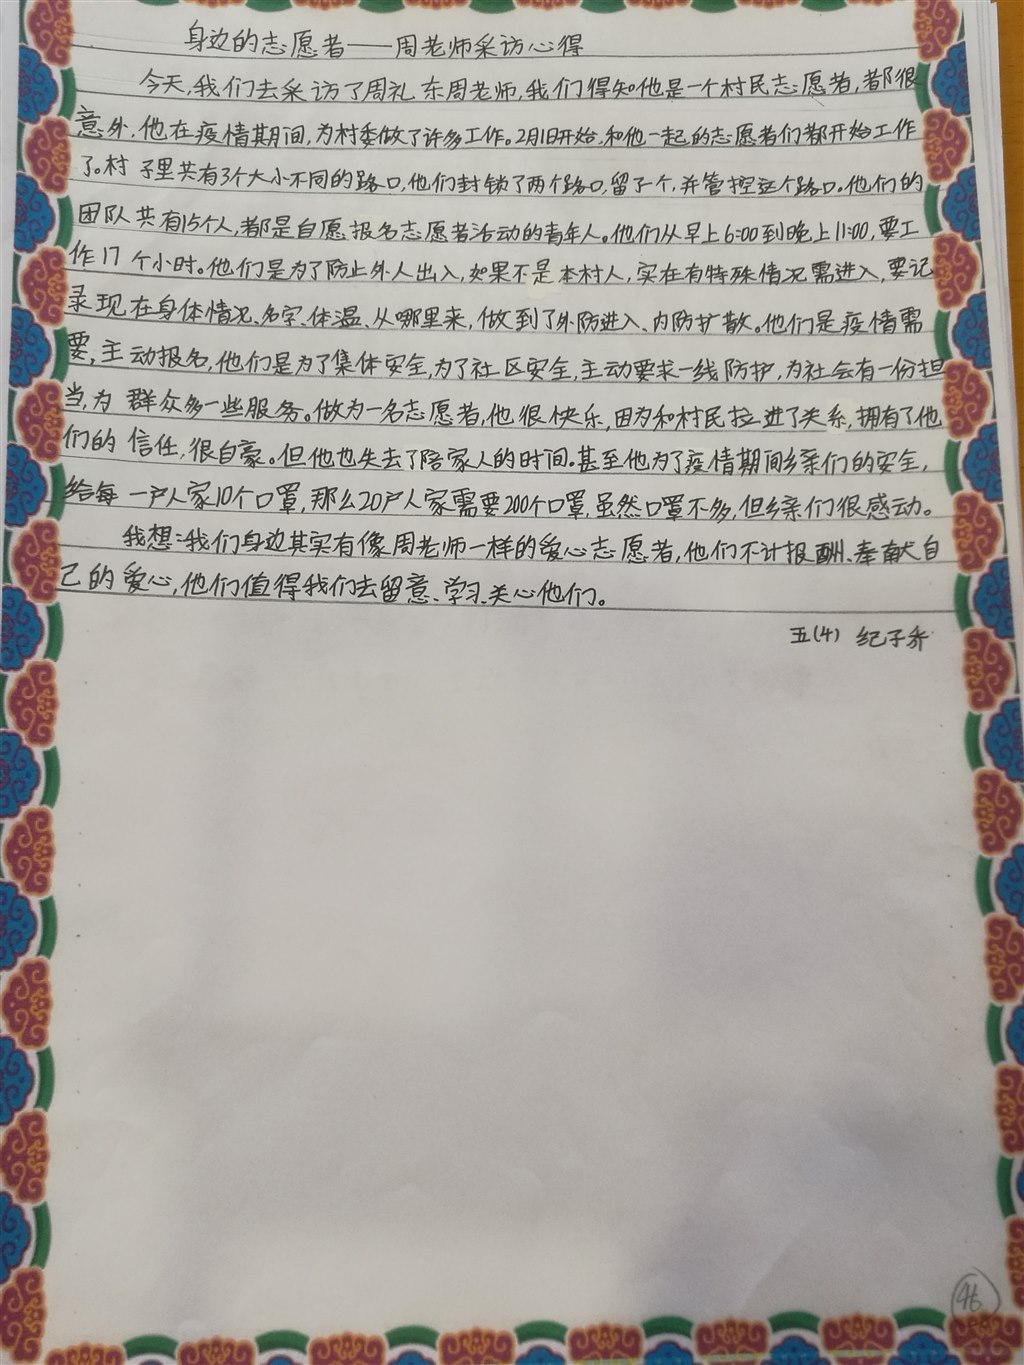 身边的志愿者——周老师采访心得
今天,我们去采访了周礼东周老师,我们得知他是一个村民志愿者,都很
意外,他在疫情期间,为村委做了许多工作。2月1日开始,和他一起的志愿者们都开始工作
了。村子里共有3个大小不同的路口,他们封锁了两个路口,留了一个,并管控这个路口。他们的
团队共有15个人,都是自愿报名志愿者活动的青年人。他们从早上6:00到晚上11:00,要工
作17个小时。他们是为了防止外人出入,如果不是本村人,实在有特殊情况需进入,要记
录现在身体情况、名字、体温、从哪里来,做到了外防进入、内防扩散。他们是疫情需
要,主动报名,他们是为了集体安全,为了社区安全,主动要求一线防护,为社会有一份担
当,为群众多一些服务。做为一名志愿者,他很快乐,因为和村民拉进了关系,拥有了他
们的信任,很自豪。但他也失去了陪家人的时间。甚至他为了疫情期间乡亲们的安全,
给每一户人家10个口罩,那么20户人家需要200个口罩,虽然口罩不多,但乡亲们很感动。
我想:我们身边其实有像周老师一样的爱心志愿者,他们不计报酬、奉献自
己的爱心,他们值得我们去留意、学习、关心他们。
五(4) 纪子乔
46